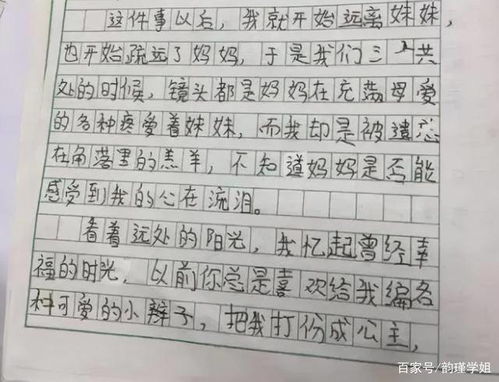 这件事以后，我就开始远离妹妹，
也开始疏远了妈妈，于是我们三人共
处的时候，镜头都是妈妈在充满母爱
的各种疼爱着妹妹，而我却是被遗忘
在角落里的羔羊，不知道妈妈是否能
感受到我的心在流泪。
看着远处的阳光，我忆起曾经幸
福的时光，以前你总是喜欢给我编各
种可爱的小辫子，把我打份成公主，
百家号/韵瑾学姐